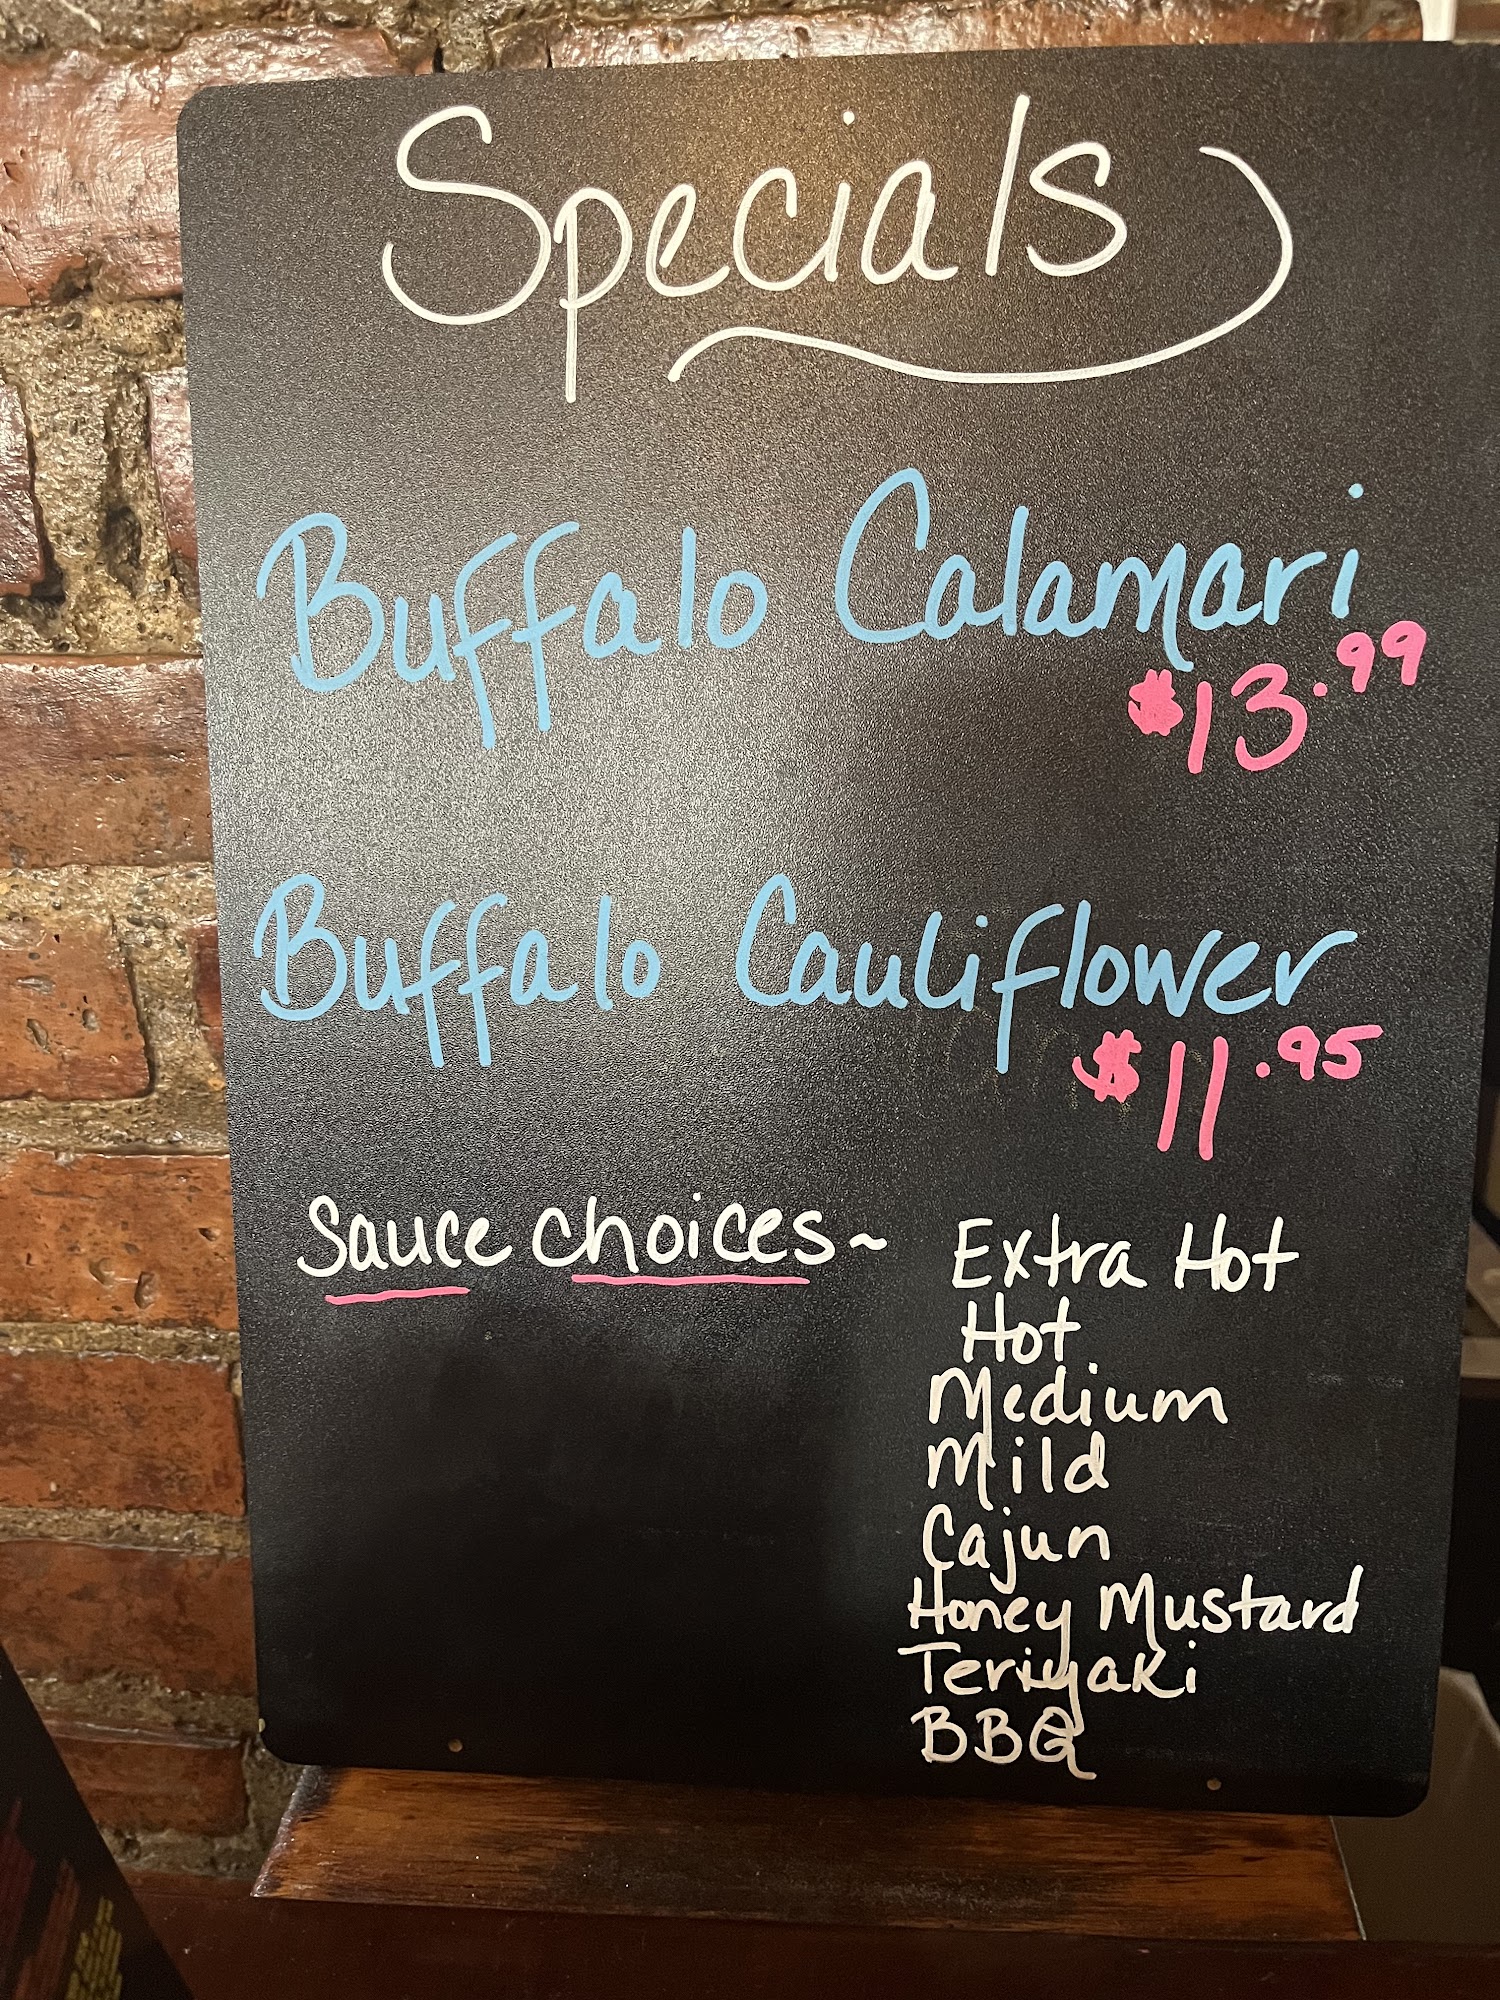 Specials
Buffalo Calamari
$13.99
Buffalo Cauliflower
$11.95
Sauce choices~ Extra Hot
Hot
Medium
Mild
Cajun
Honey Mustard
Teriyaki
BBQ